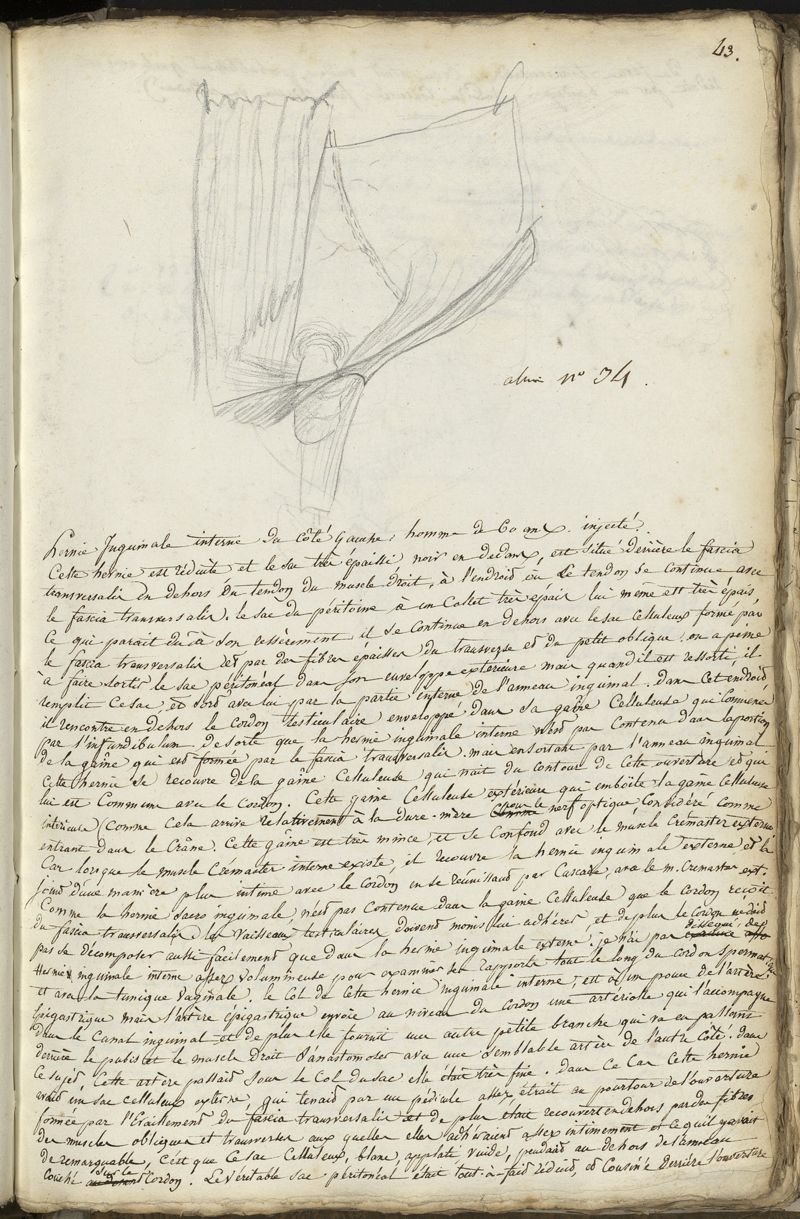 43.
n° 34.
Hernie Inguinale interne du côté gauche, homme de 60 ans. injecté.
Cette hernie est réduite et le sac très épaissi, noir en dedans, est situé derrière le fascia
transversalis en dehors du tendon du muscle droit, à l'endroit où le tendon se continue avec
le fascia transversalis. le sac du péritoine a un Collet très épais lui même est très épais
Ce qui parait dû à son resserrement il se continue en dehors avec le sac Celluleux formé par
le fascia transversalis et par des fibres épaisses du transverse et du petit oblique. on a peine
à faire sortir le sac péritonéal dans son enveloppe extérieure mais quand il est ressorti, il
remplit Ce sac, et sort avec lui par la partie interne de l'anneau inguinal. Dans Cet endroit
il rencontre en dehors le Cordon testiculaire enveloppé dans sa gaîne Celluleuse qui Commence
par l'infundibulum. De sorte que la hernie inguinale interne n'est pas Contenue dans la portion
de la gaîne qui est formée par le fascia transversalis. mais en sortant par l'anneau inguinal
Cette hernie se recouvre de la gaîne Celluleuse qui nait du Contour de Cette ouverture et qui
lui est Commune avec le Cordon. Cette gaîne Celluleuse extérieure qui emboîte la gaîne Celluleuse
intérieure (Comme Cela arrive relativement à la dure-mère pour le nerf optique Considéré Comme
entrant dans le Crâne. Cette gaîne est très mince, et se Confond avec le muscle Crémaster externe
Car lorsque le muscle Crémaster interne existe, il recouvre la hernie inguinale externe et la
joint d'une manière plus intime avec le Cordon en se réunissant par avec le m. Cremaster ext.
Comme la hernie inguinale, n'est pas Contenue dans la gaine Celluleuse que le Cordon reçoit
du fascia transversalis les Vaisseaux testiculaires doivent moins lui adhérer et de plus le Cordon
pas se décomposer aussi facilement que dans la hernie inguinale externe. je n'ai pas disséqué des
Hernie inguinale interne assez volumineuse pour examiner les rapports tout le long du Cordon spermat.
et avec la tunique Vaginale. le Col de Cette hernie inguinale interne, est à un pouce de l'artère
Epigastrique mais l'artère épigastrique envoie au niveau du Cordon une artériole qui l'accompagne
dans le Canal inguinal et de plus elle fournit une autre petite branche qui va en passant
derrière le pubis et le muscle Droit s'anastomoser avec une semblable artère de l'autre Côté. dans
Ce sujet, Cette artère passait sous le Col du sac elle était très fine. Dans Ce Cas Cette hernie
avait un sac celluleux externe, qui tenait par un pédicule assez étroit au pourtour de l'ouverture
formée par l'éraillement du fascia transversalis et de plus était recouvert en dehors par des fibres
des muscles obliques et transverses aux quelles elles adhéraient assez intimement et Ce qu'il y avait
de remarquable, C'est que Ce sac Celluleux, blanc, applati, vuide, pendait au dehors de l'anneau
Couché sur le Cordon. Le véritable sac péritonéal était tout-à-fait réduit, et derrière l'ouverture